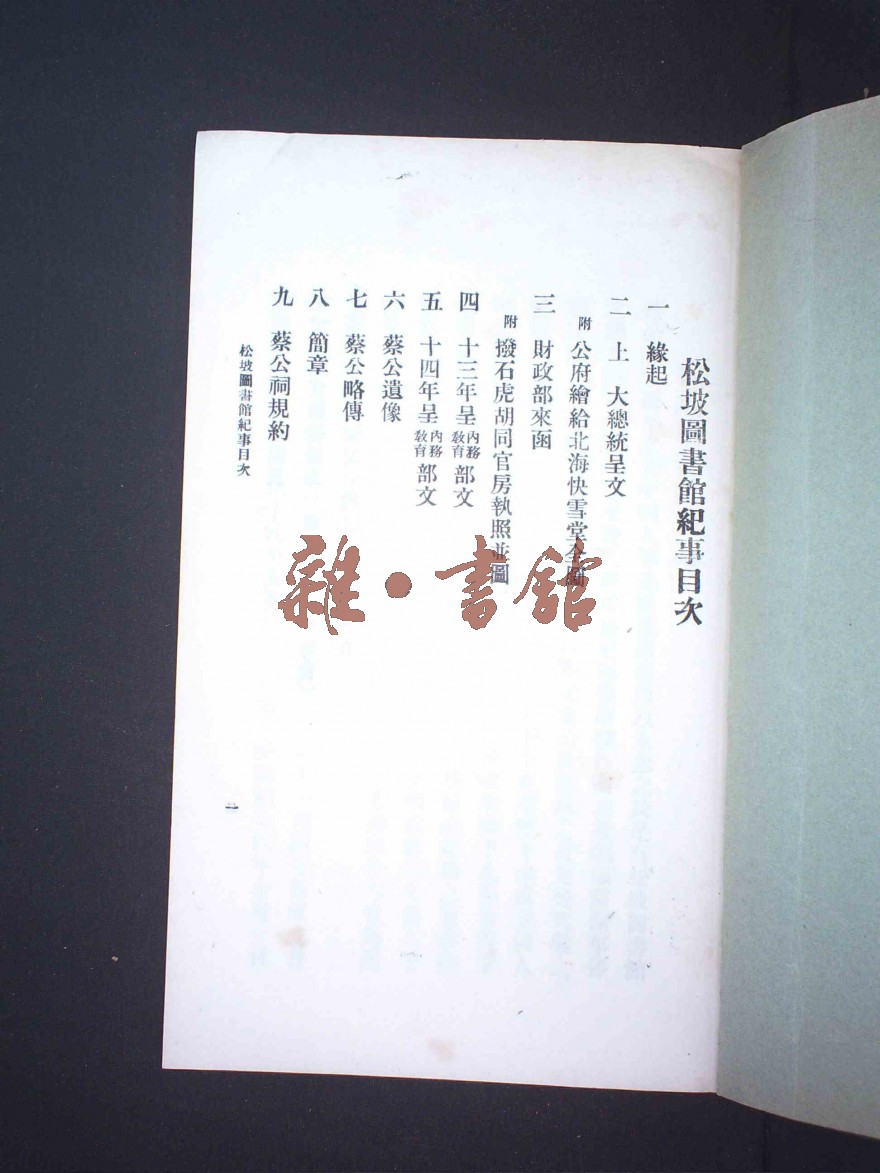 松坡圖書館紀事目次
一 緣起
二 上 大總統呈文
附 公府繪給北海快雪堂全圖
三 財政部來函
附 撥石虎胡同官房執照並圖
四 十三年呈內務教育部文
五 十四年呈內務教育部文
六 蔡公遺像
七 蔡公略傳
八 簡章
九 蔡公祠規約
松坡圖書館紀事目次
雜·書館